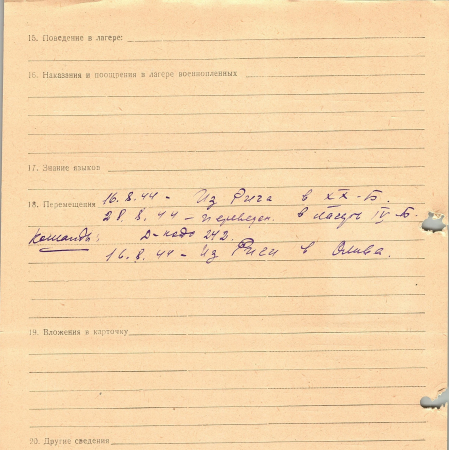 15. Поведение в лагере:
16. Наказания и поощрения в лагере военнопленных
17. Знание языков
18. Перемещения 16.8.44 - Из Рига в XX-Б.
28.8.44 - переведен в лагерь IV-Б.
Команды: 242.
16.8.44 - Из Риги в Олива.
19. Вложения в карточку
20. Другие сведения